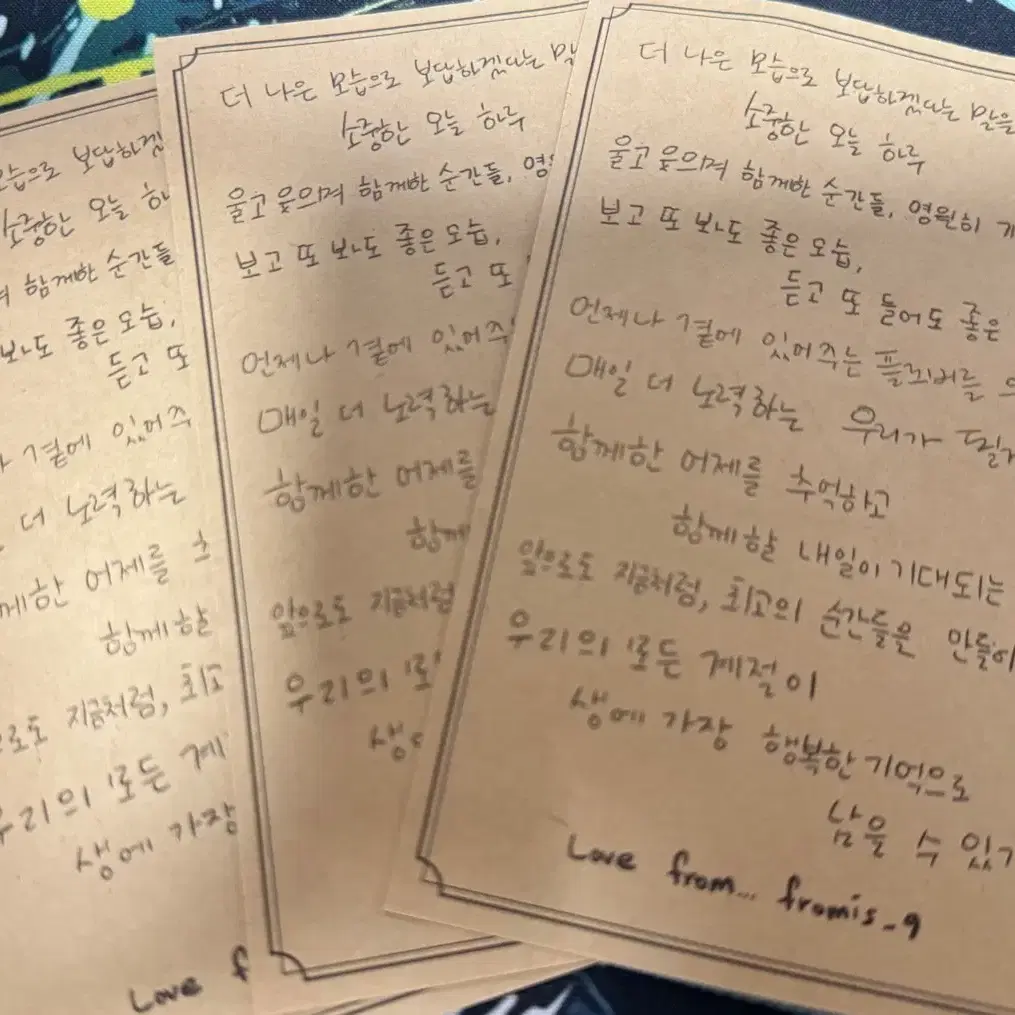 모습으로 보답하겠
소중한 오늘 하
함께한 순간들
봐도 좋은 모습,
듣고 또
곁에 있어주
더 노력하는
께한 어제를 추
함께할
으로도 지금처럼, 최고
우리의 모든 계
생에 가장
Love f
더 나은 모습으로 보답하겠다는 말
소중한 오늘 하루
울고 웃으며 함께한 순간들, 영원
보고 또 봐도 좋은 모습,
듣고 또
언제나 곁에 있어주
매일 더 노력하는
함께한 어제를
함께
앞으로도 지금처럼
우리의 모
생에
더 나은 모습으로 보답하겠다는 말을
소중한 오늘 하루
울고 웃으며 함께한 순간들, 영원히 기
보고 또 봐도 좋은 모습,
듣고 또 들어도 좋은
언제나 곁에 있어주는 플로버를 위
매일 더 노력하는 우리가 될게
함께한 어제를 추억하고
함께할 내일이 기대되는
앞으로도 지금처럼, 최고의 순간들을 만들어
우리의 모든 계절이
생에 가장 행복한 기억으로
남을 수 있기
Love from... fromis_9